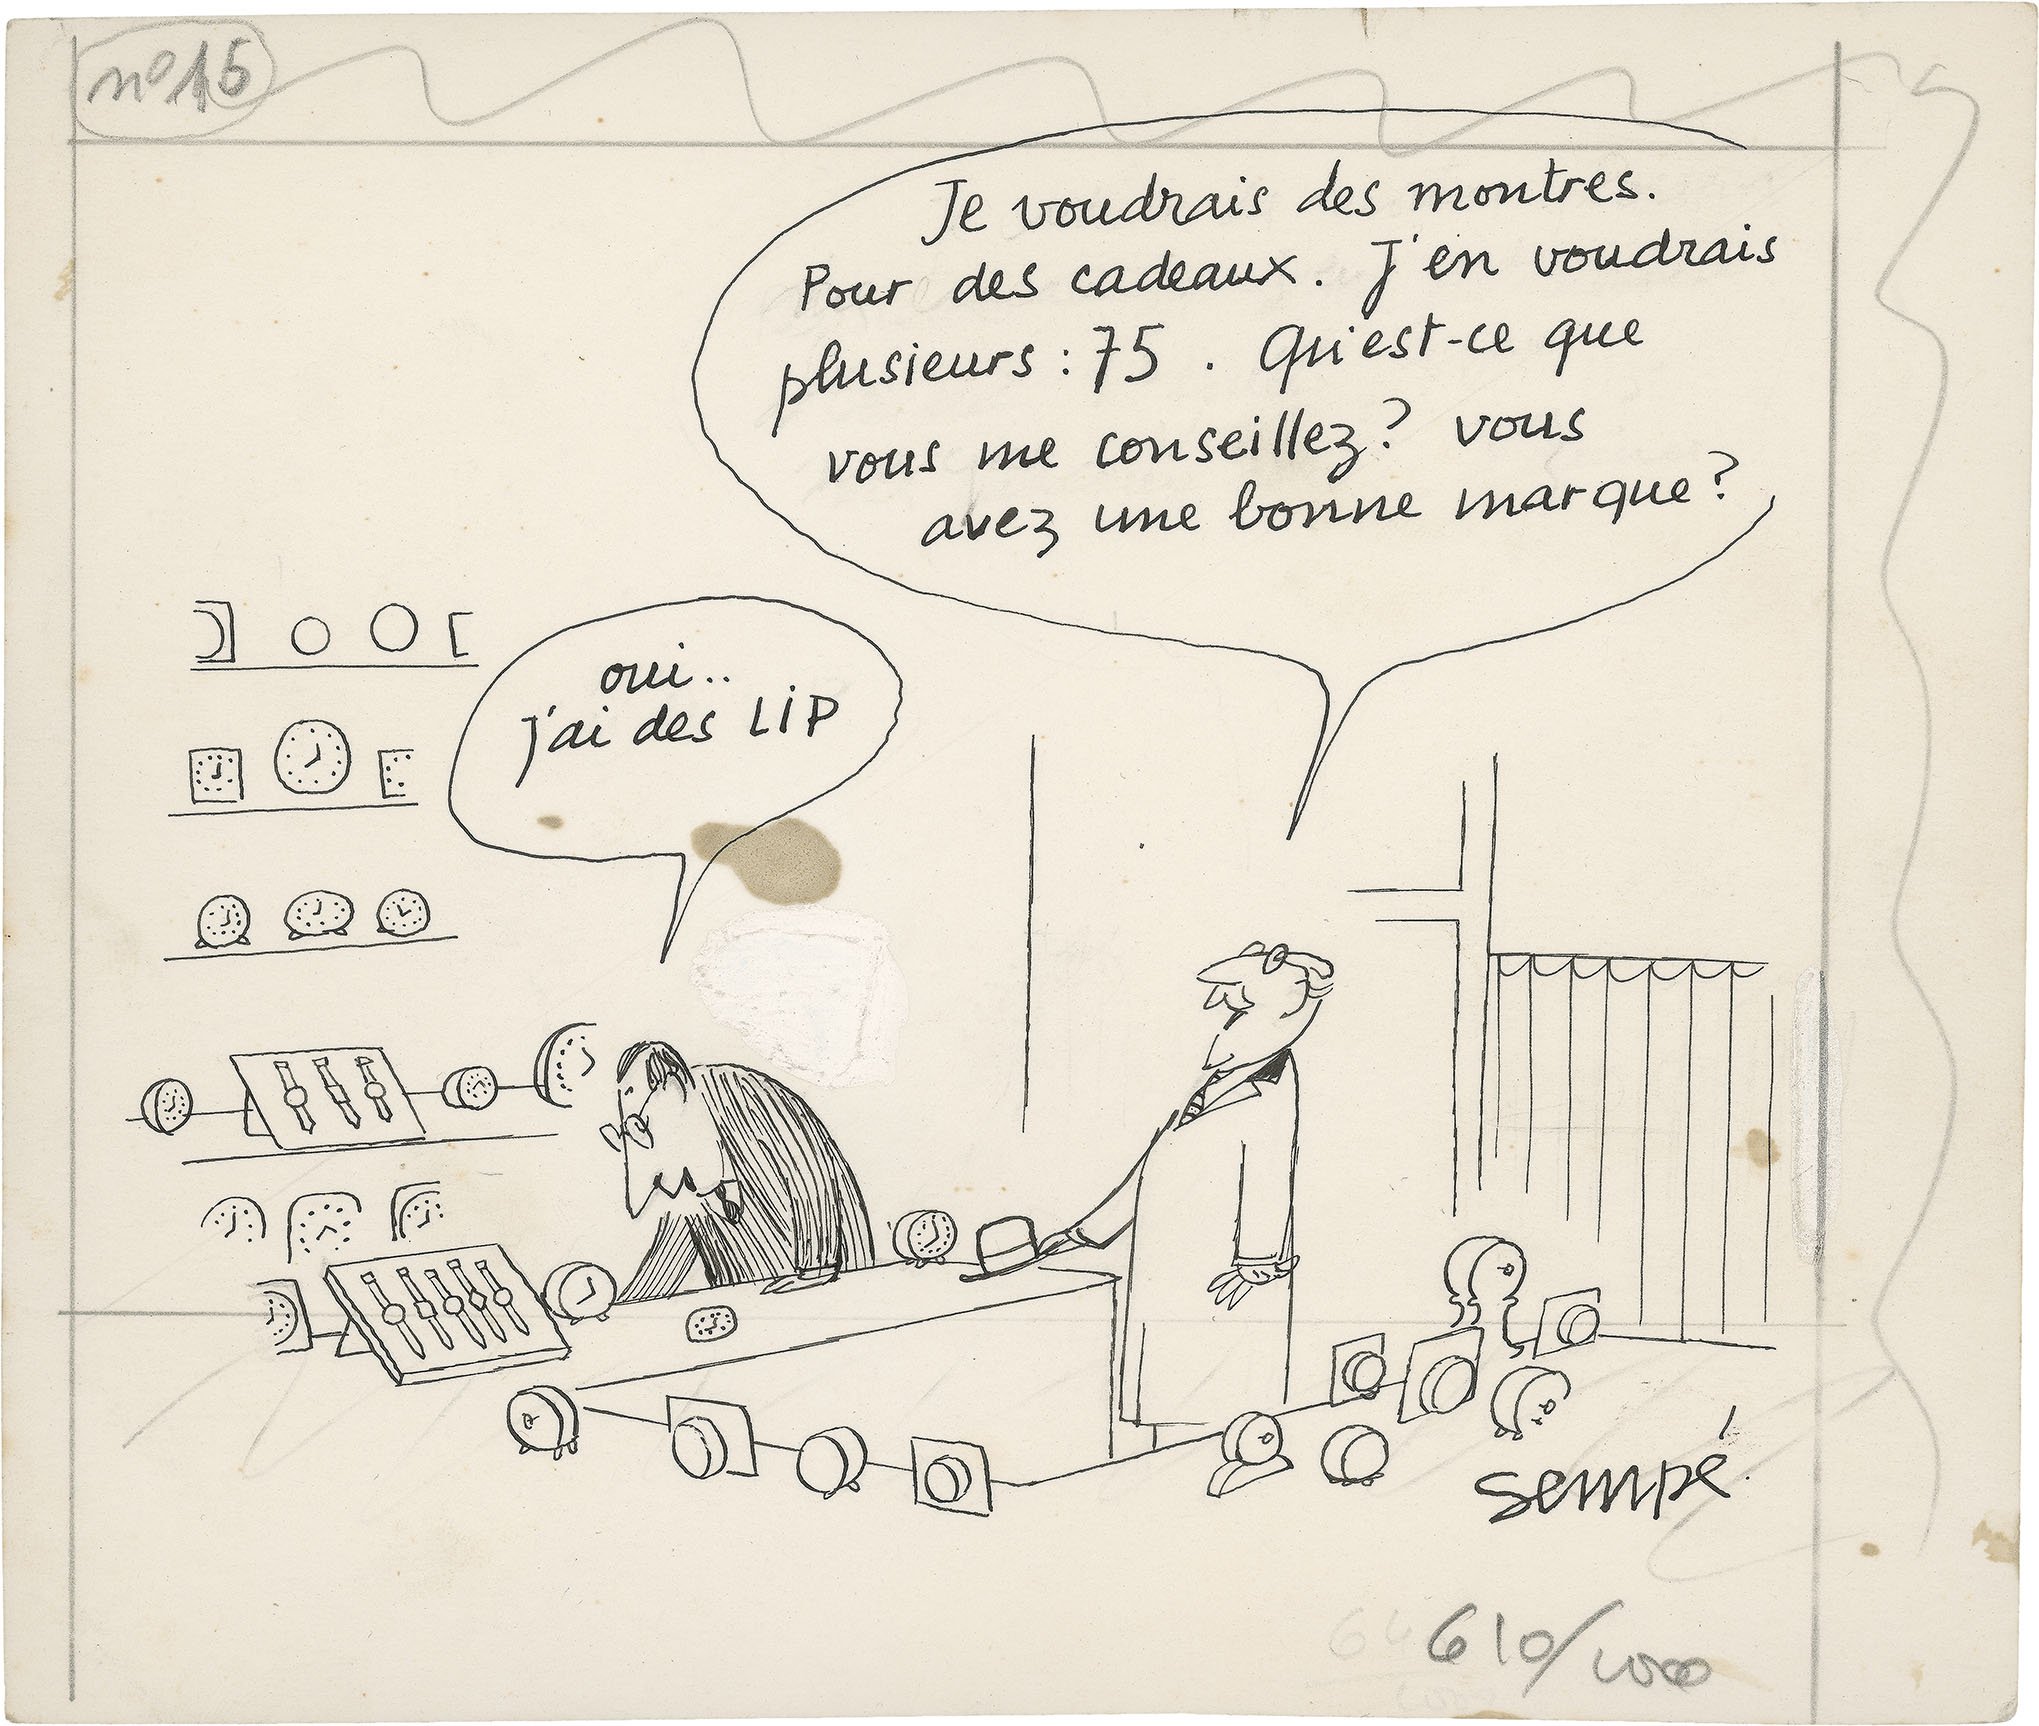 n° 15
Je voudrais des montres.
Pour des cadeaux. J'en voudrais
plusieurs : 75. Qu'est-ce que
vous me conseillez ? vous
avez une bonne marque ?
oui..
j'ai des LIP
sempé
610/1000